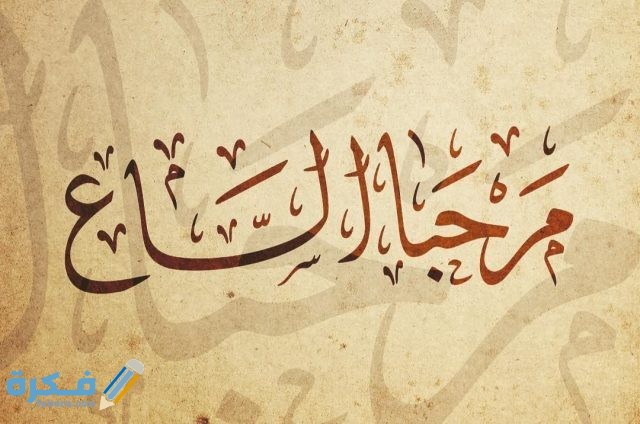 مَرْحَبا السَّاع
فكرة